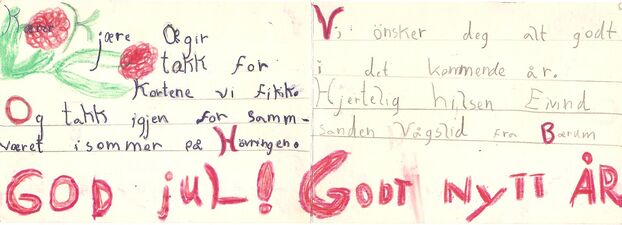 kjære Ægir
takk for
Kortene vi fikk.
Og takk igjen for samm-
været i sommer på Høvringen.
GOD jUL!
Vi ønsker deg alt godt
i det kommende år.
Hjertelig hilsen Eivind
sanden Vågslid fra Bærum
GODT NYTT ÅR